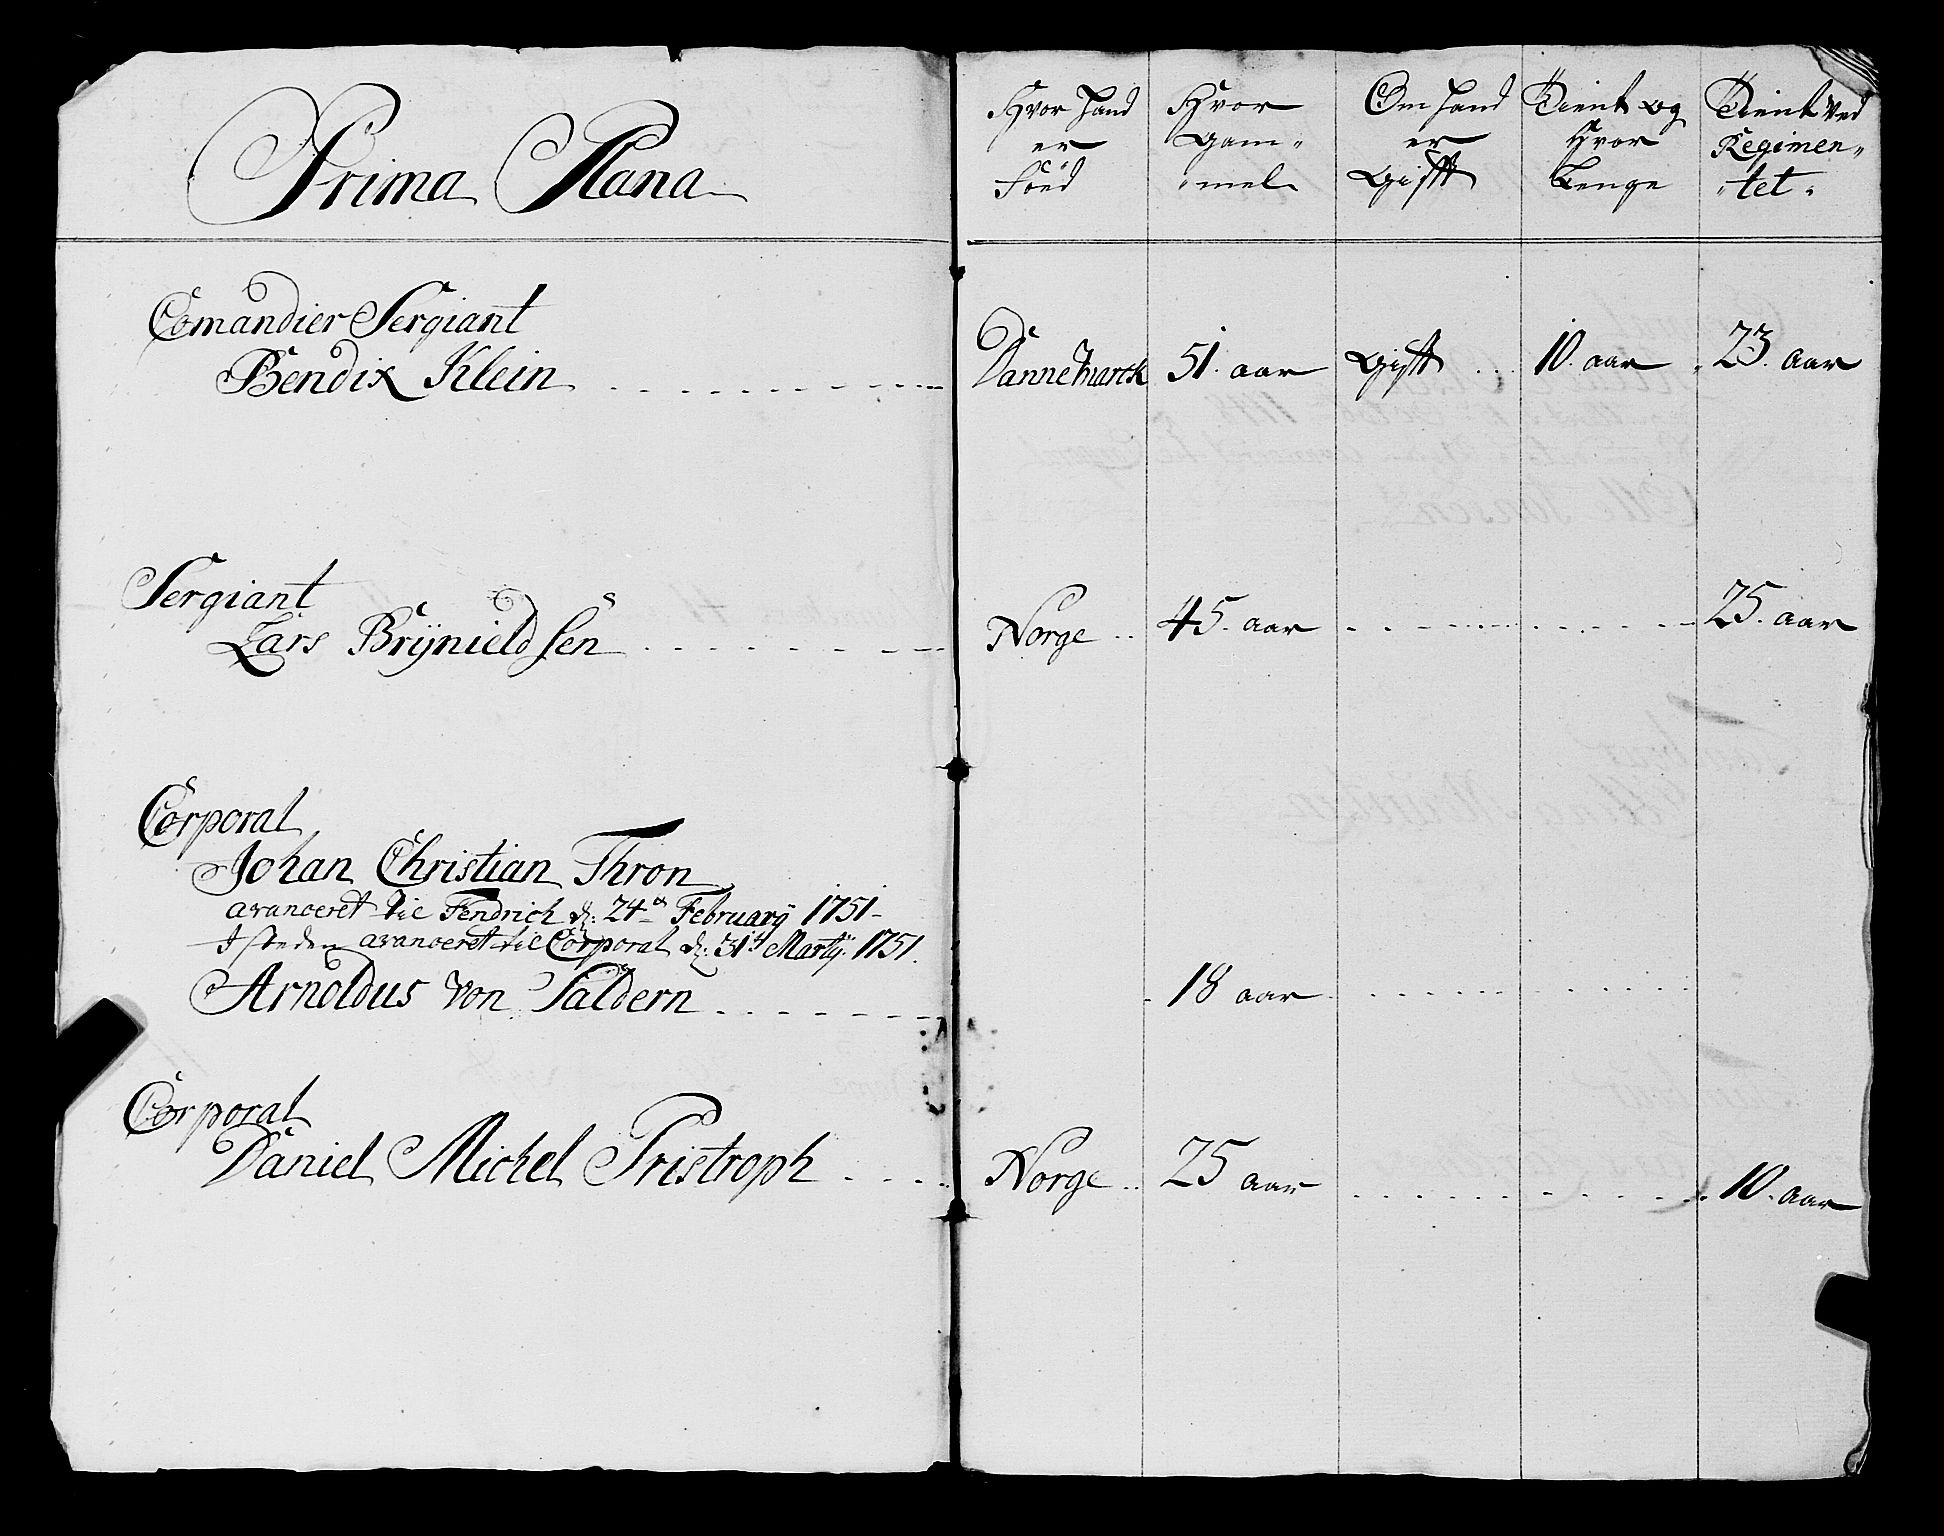 Prima Plana
Hvor hand er Föed
Hvor Gam„ „mel
Om hand er Gifft
Tient og Hvor Lenge
Tient ved Regimen„ „tet„
Comandier Sergiant
Bendix Klein Dannemarck 51. aar Gifft 10. aar 23. aar
Sergiant
Lars Brÿnieldsen Norge 45. aar 25. aar
Corporal
Johan Christian Thron
avanceret til Fendrich d: 24de Februarÿ 1751
I steden avanceret til Corporal d: 31te Martÿ 1751.
Arnoldus von Saldern 18 aar
Corporal
Daniel Michel Pristroph Norge 25 aar 10. aar